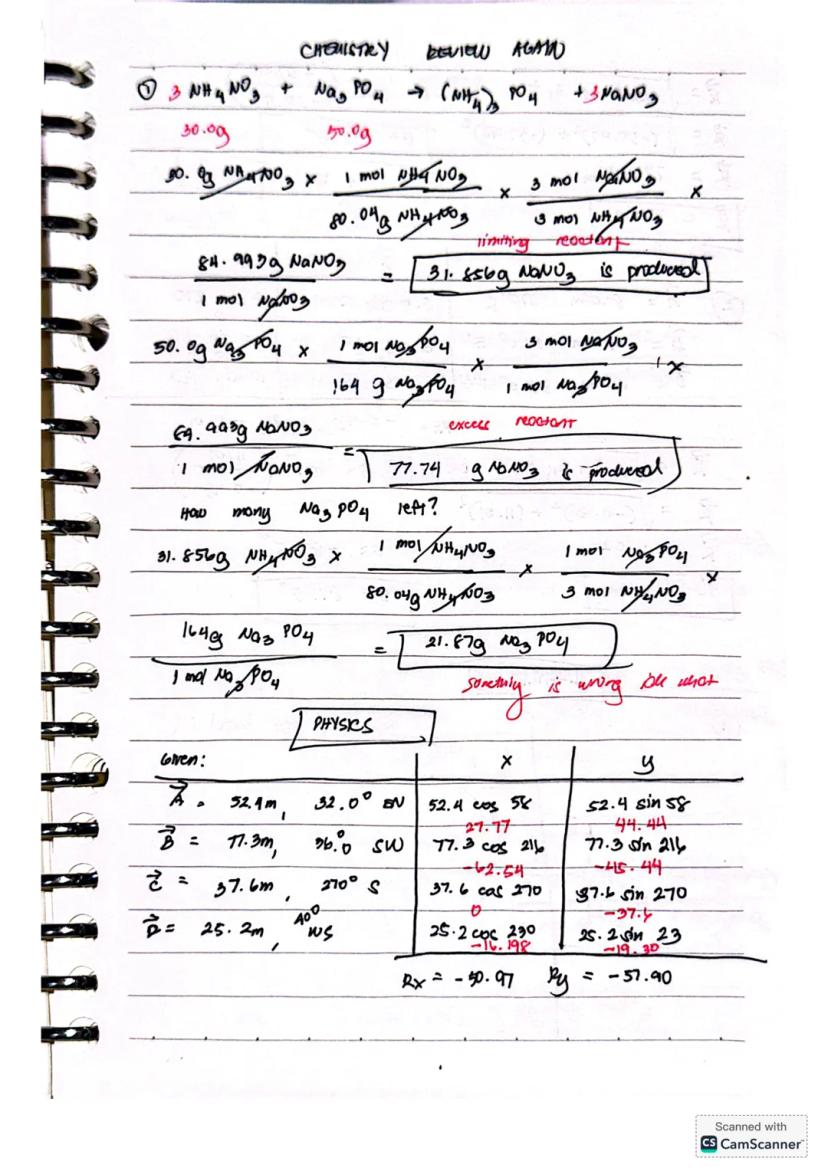 CHEMISTRY REVIEW AGAIN
① 3 NH4NO3 + Na3PO4 → (NH4)3 PO4 + 3NaNO3
30.0g 50.0g
30.0g NH4NO3 x 1 mol NH4NO3 / 80.04g NH4NO3 x 3 mol NaNO3 / 3 mol NH4NO3 x
limiting reactant
84.993g NaNO3 / 1 mol NaNO3 = 31.856g NaNO3 is produced
50.0g Na3PO4 x 1 mol Na3PO4 / 164 g Na3PO4 x 3 mol NaNO3 / 1 mol Na3PO4 x
excess reactant
84.993g NaNO3 / 1 mol NaNO3 = 77.74 g NaNO3 is produced
How many Na3PO4 left?
31.856g NH4NO3 x 1 mol NH4NO3 / 80.04g NH4NO3 x 1 mol Na3PO4 / 3 mol NH4NO3 x
164g Na3PO4 / 1 mol Na3PO4 = 21.87g Na3PO4
is wrong what
PHYSICS
Given: x y
A = 52.4m, 32.0° EN 52.4 cos 58 52.4 sin 58
27.77 44.44
B = 77.3m, 36.0° SW 77.3 cos 216 77.3 sin 216
-62.54 -45.44
C = 37.6m, 270° S 37.6 cos 270 37.6 sin 270
0 -37.6
D = 25.2m, 40° WS 25.2 cos 230 25.2 sin 23
-16.198 -19.30
Rx = -50.97 Ry = -57.90
Scanned with
CS CamScanner